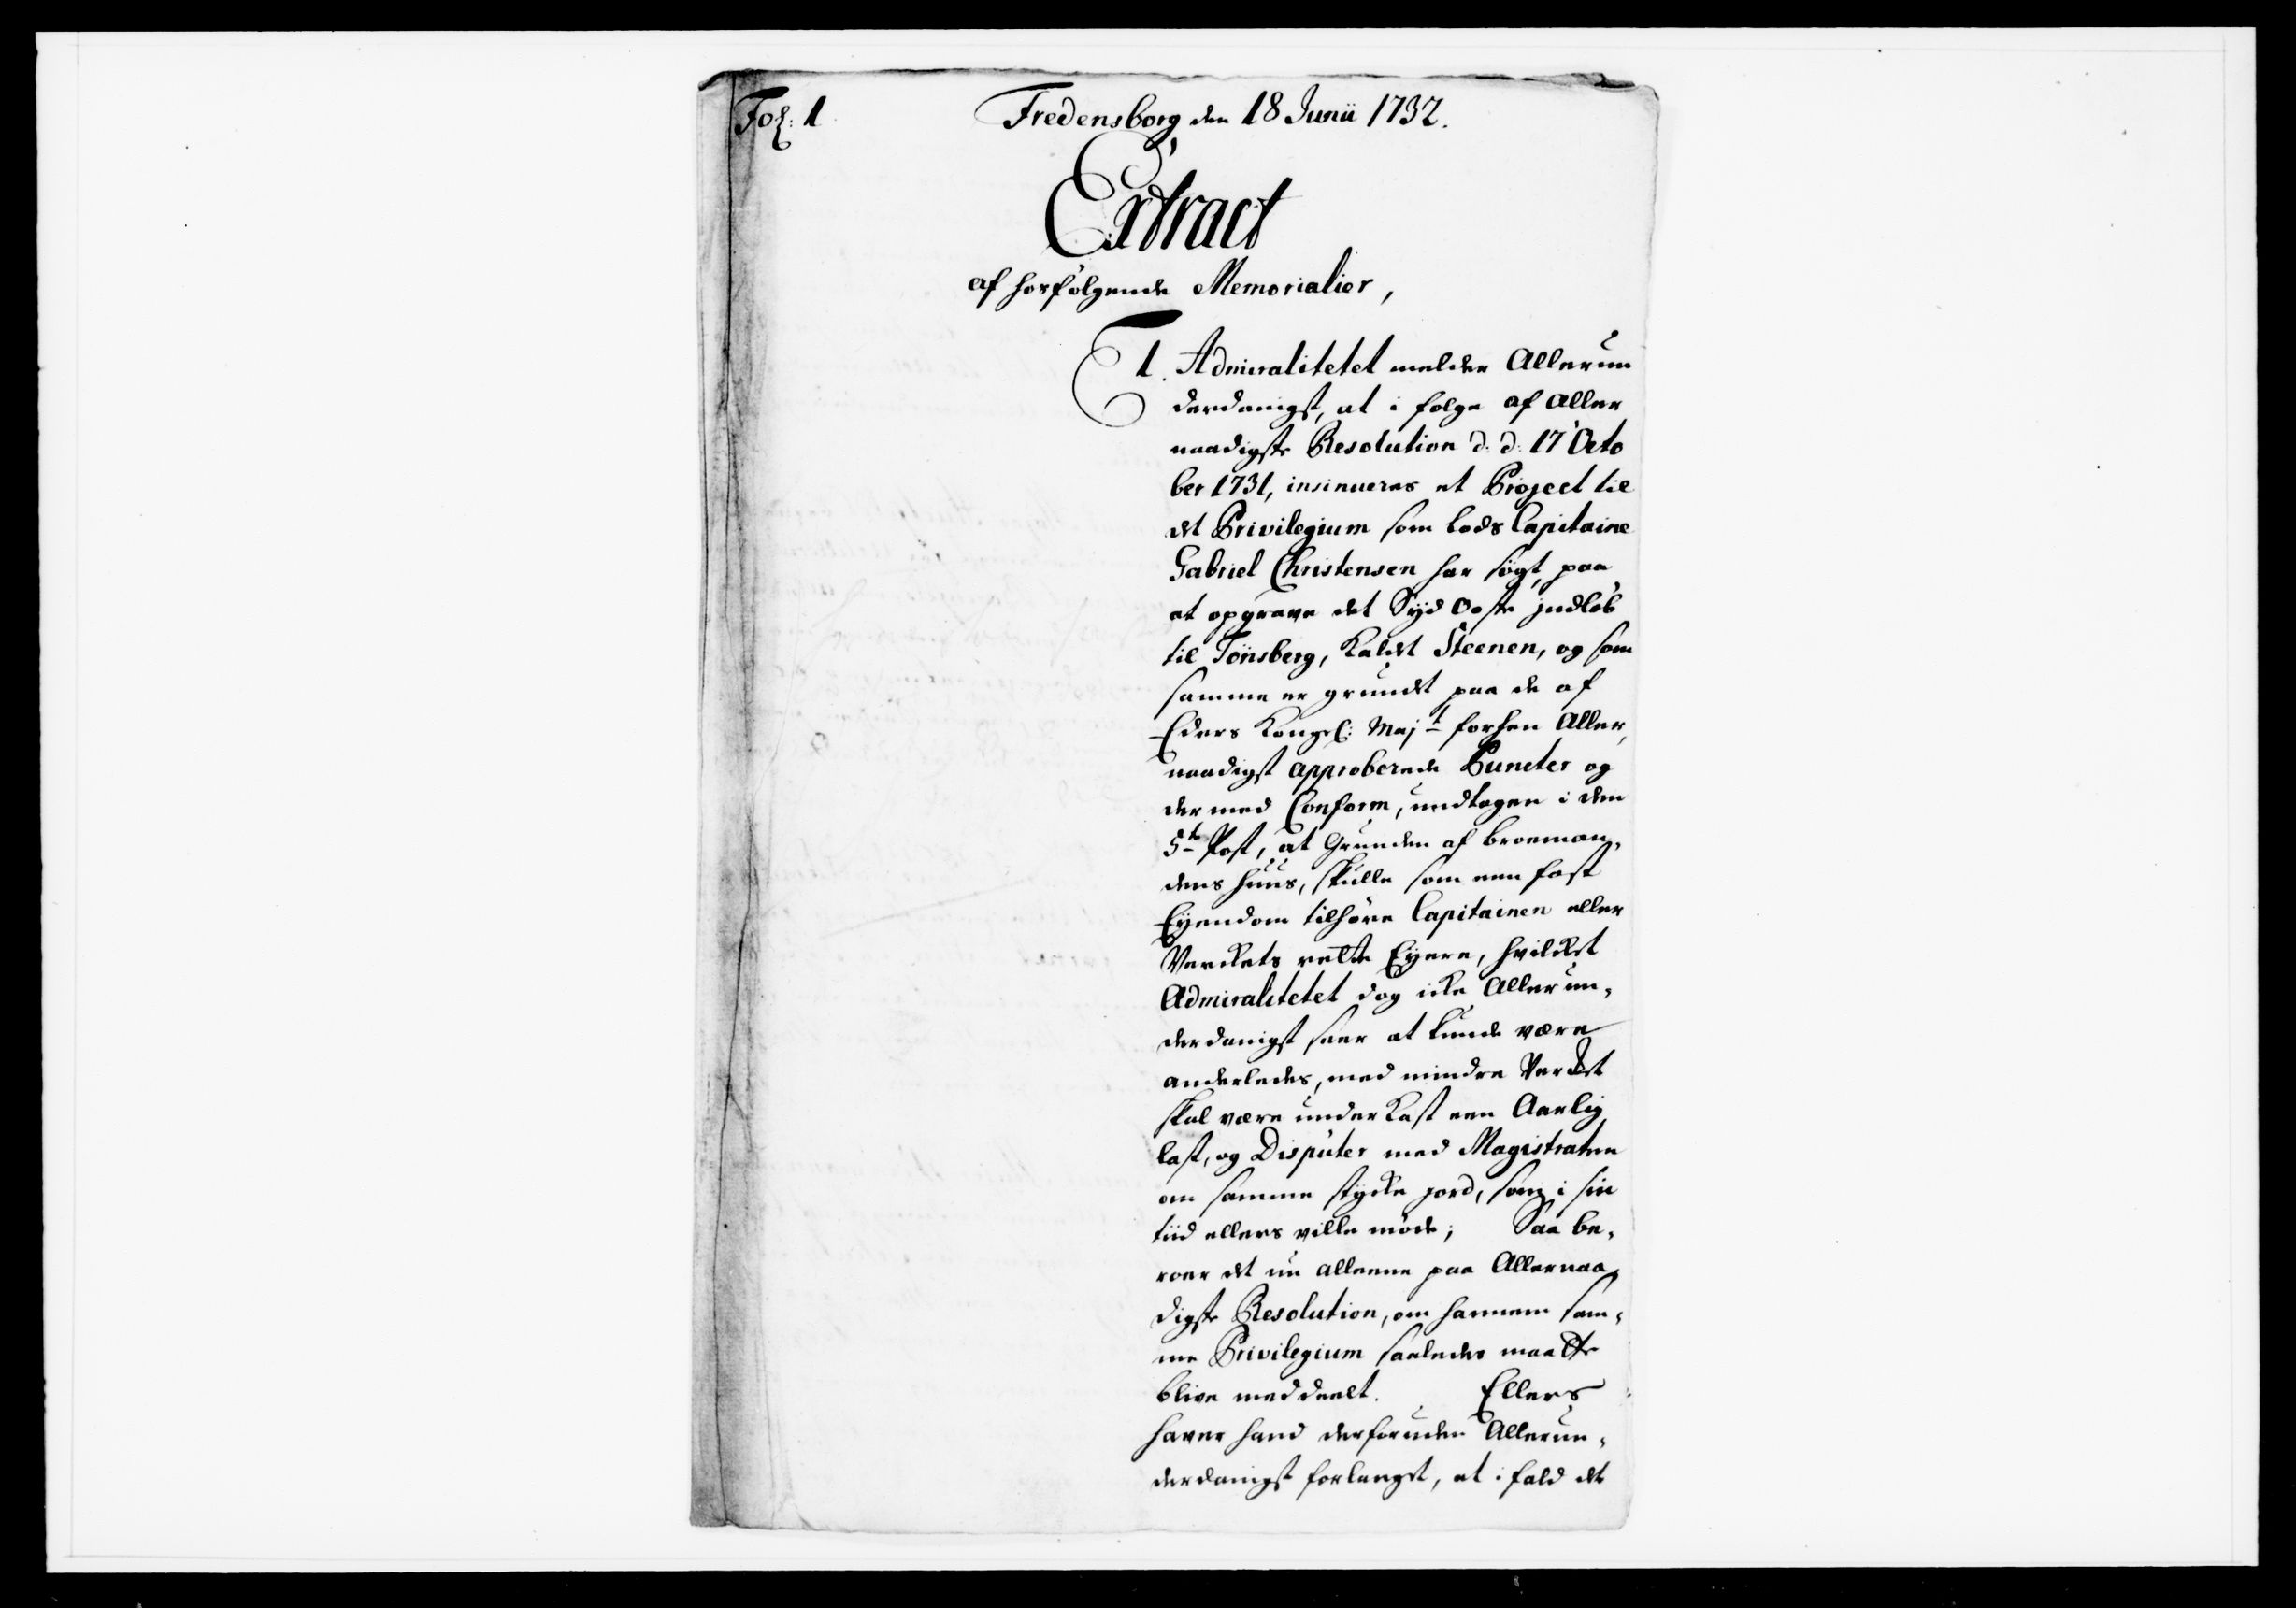 Fol: 1
Fredensborg den 18 Junii 1732.
Extract
af hosfølgende Memorialier,
1. Admiralitetet melder Allerun
derdanigst, at i følge af Aller
naadigste Resolution d. d. 17 Octo
ber 1731, insinueres et Project til
det Privilegium som Lods Capitaine
Gabriel Christensen har søgt, paa
at opgrave det Syd Oste jndløb
til Tønsberg, Kaldet Steenen, og som
samme er grundet paa de af
Eders Kongel: Maj:t forhen Aller,
naadigst approberede Puncter og
der med Conform, undtagen i den
5te Post, at Grunden af broeman,
dens Huus, skulle som een fast
Eyendom tilhøre Capitainen eller
Verckets rette Eyere, hvilcket
Admiralitetet dog icke Allerun,
derdanigst seer at kunde være
anderledes, med mindre Vercket
skal være under Kast een Aarlig
last, og Disputer med Magistraten
om samme stycke jord, som i sin
tiid ellers ville møde; Saa be,
roer det nu alleene paa Allernaa,
digste Resolution, om hannem sam,
me Privilegium saaledes maatte
blive meddeelt. Ellers
haver hand derforuden Allerun,
derdanigst forlanget, at i fald det